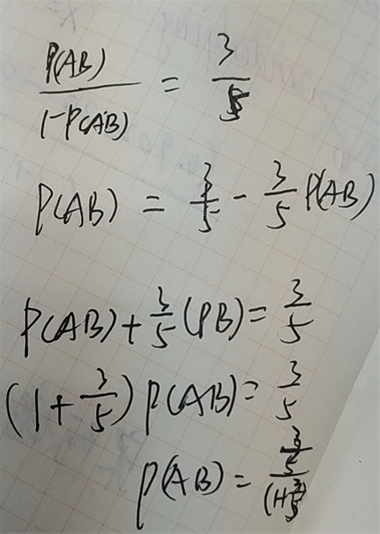 P(AB)/(1-P(AB)) = 3/5
P(AB) = 3/5 - 3/5 P(AB)
P(AB) + 3/5 (PB) = 3/5
(1 + 3/5) P(AB) = 3/5
P(AB) = (3/5)/(1+3/5)